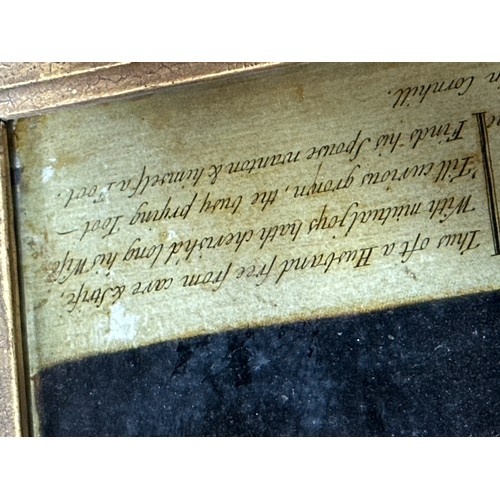 Thus oft a Husband free from care & strife,
With mutual joys hath cherish'd long his Wife
'Till curious grown, the busy prying Toot –
Finds his Spouse wanton & himself a Fool.
n Cornhill.